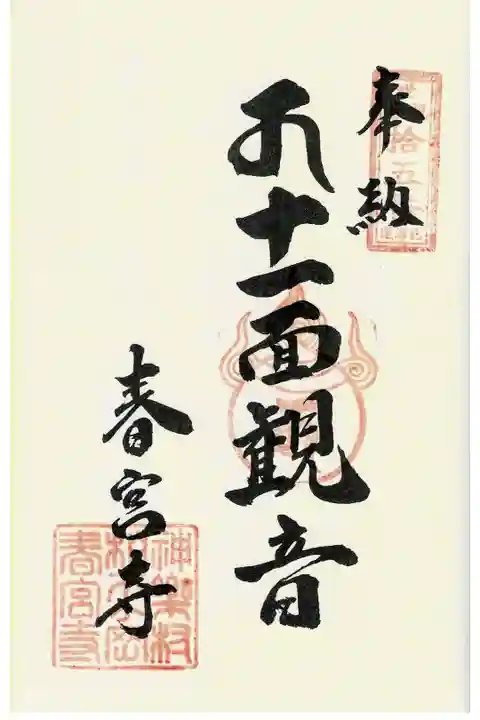 奉納
十一面観音
春宮寺
拾五
神樂村
春宮寺